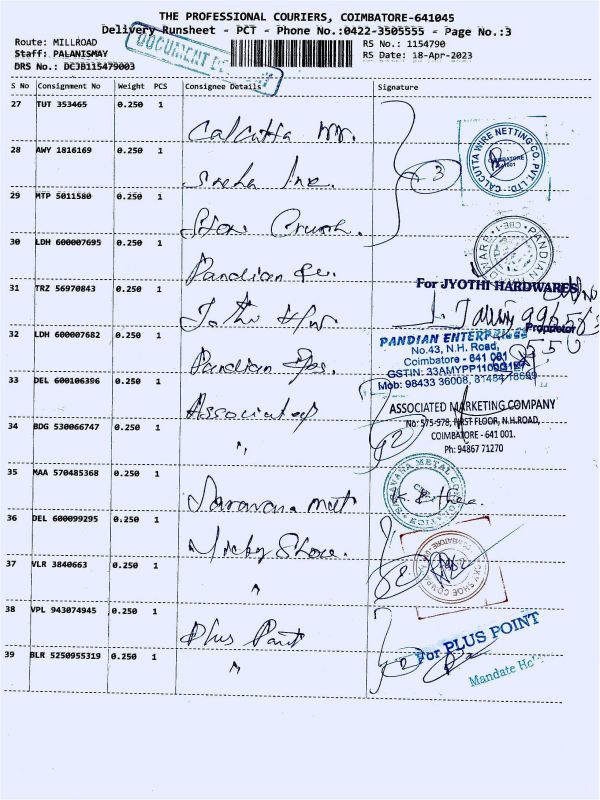 THE PROFESSIONAL COURIERS, COIMBATORE-641045
Delivery Runsheet - PCT - Phone No.:0422-3505555 - Page No.:3
Route: MILLROAD
RS No.: 1154790
Staff: PALANISMAY
RS Date: 18-Apr-2023
DRS No.: DCJB115479003
DOCUMENT
S No Consignment No Weight PCS Consignee Details Signature
27 TUT 353465 0.250 1
Calcutta
28 AWY 1816169 0.250 1
Sneha Inc.
3
CALCUTTA WIRE NETTING CO. PVT. LTD.
29 MTP 5011580 0.250 1
30 LDH 600007695 0.250 1
Pandian
31 TRZ 56970843 0.250 1
For JYOTHI HARDWARES
Proprietor
32 LDH 600007682 0.250 1
Pandian
PANDIAN ENTERPRISES
No.43, N.H. Road,
Coimbatore - 641 001
GSTIN: 33AMYPP1100G1
Mob: 98433 36008, 81484 78699
33 DEL 600106396 0.250 1
Associated
ASSOCIATED MARKETING COMPANY
No: 575-978, FIRST FLOOR, N.H.ROAD,
COIMBATORE - 641 001.
Ph: 94867 71270
34 BDG 530066747 0.250 1
"
2
35 MAA 570485368 0.250 1
Saravana met
SARAVANA METAL CORPORATION
36 DEL 600099295 0.250 1
Micky Shoe.
37 VLR 3840663 0.250 1
"
MICKY SHOE COMPANY
38 VPL 943074945 0.250 1
Plus Point
For PLUS POINT
39 BLR 5250955319 0.250 1
"
2
Mandate